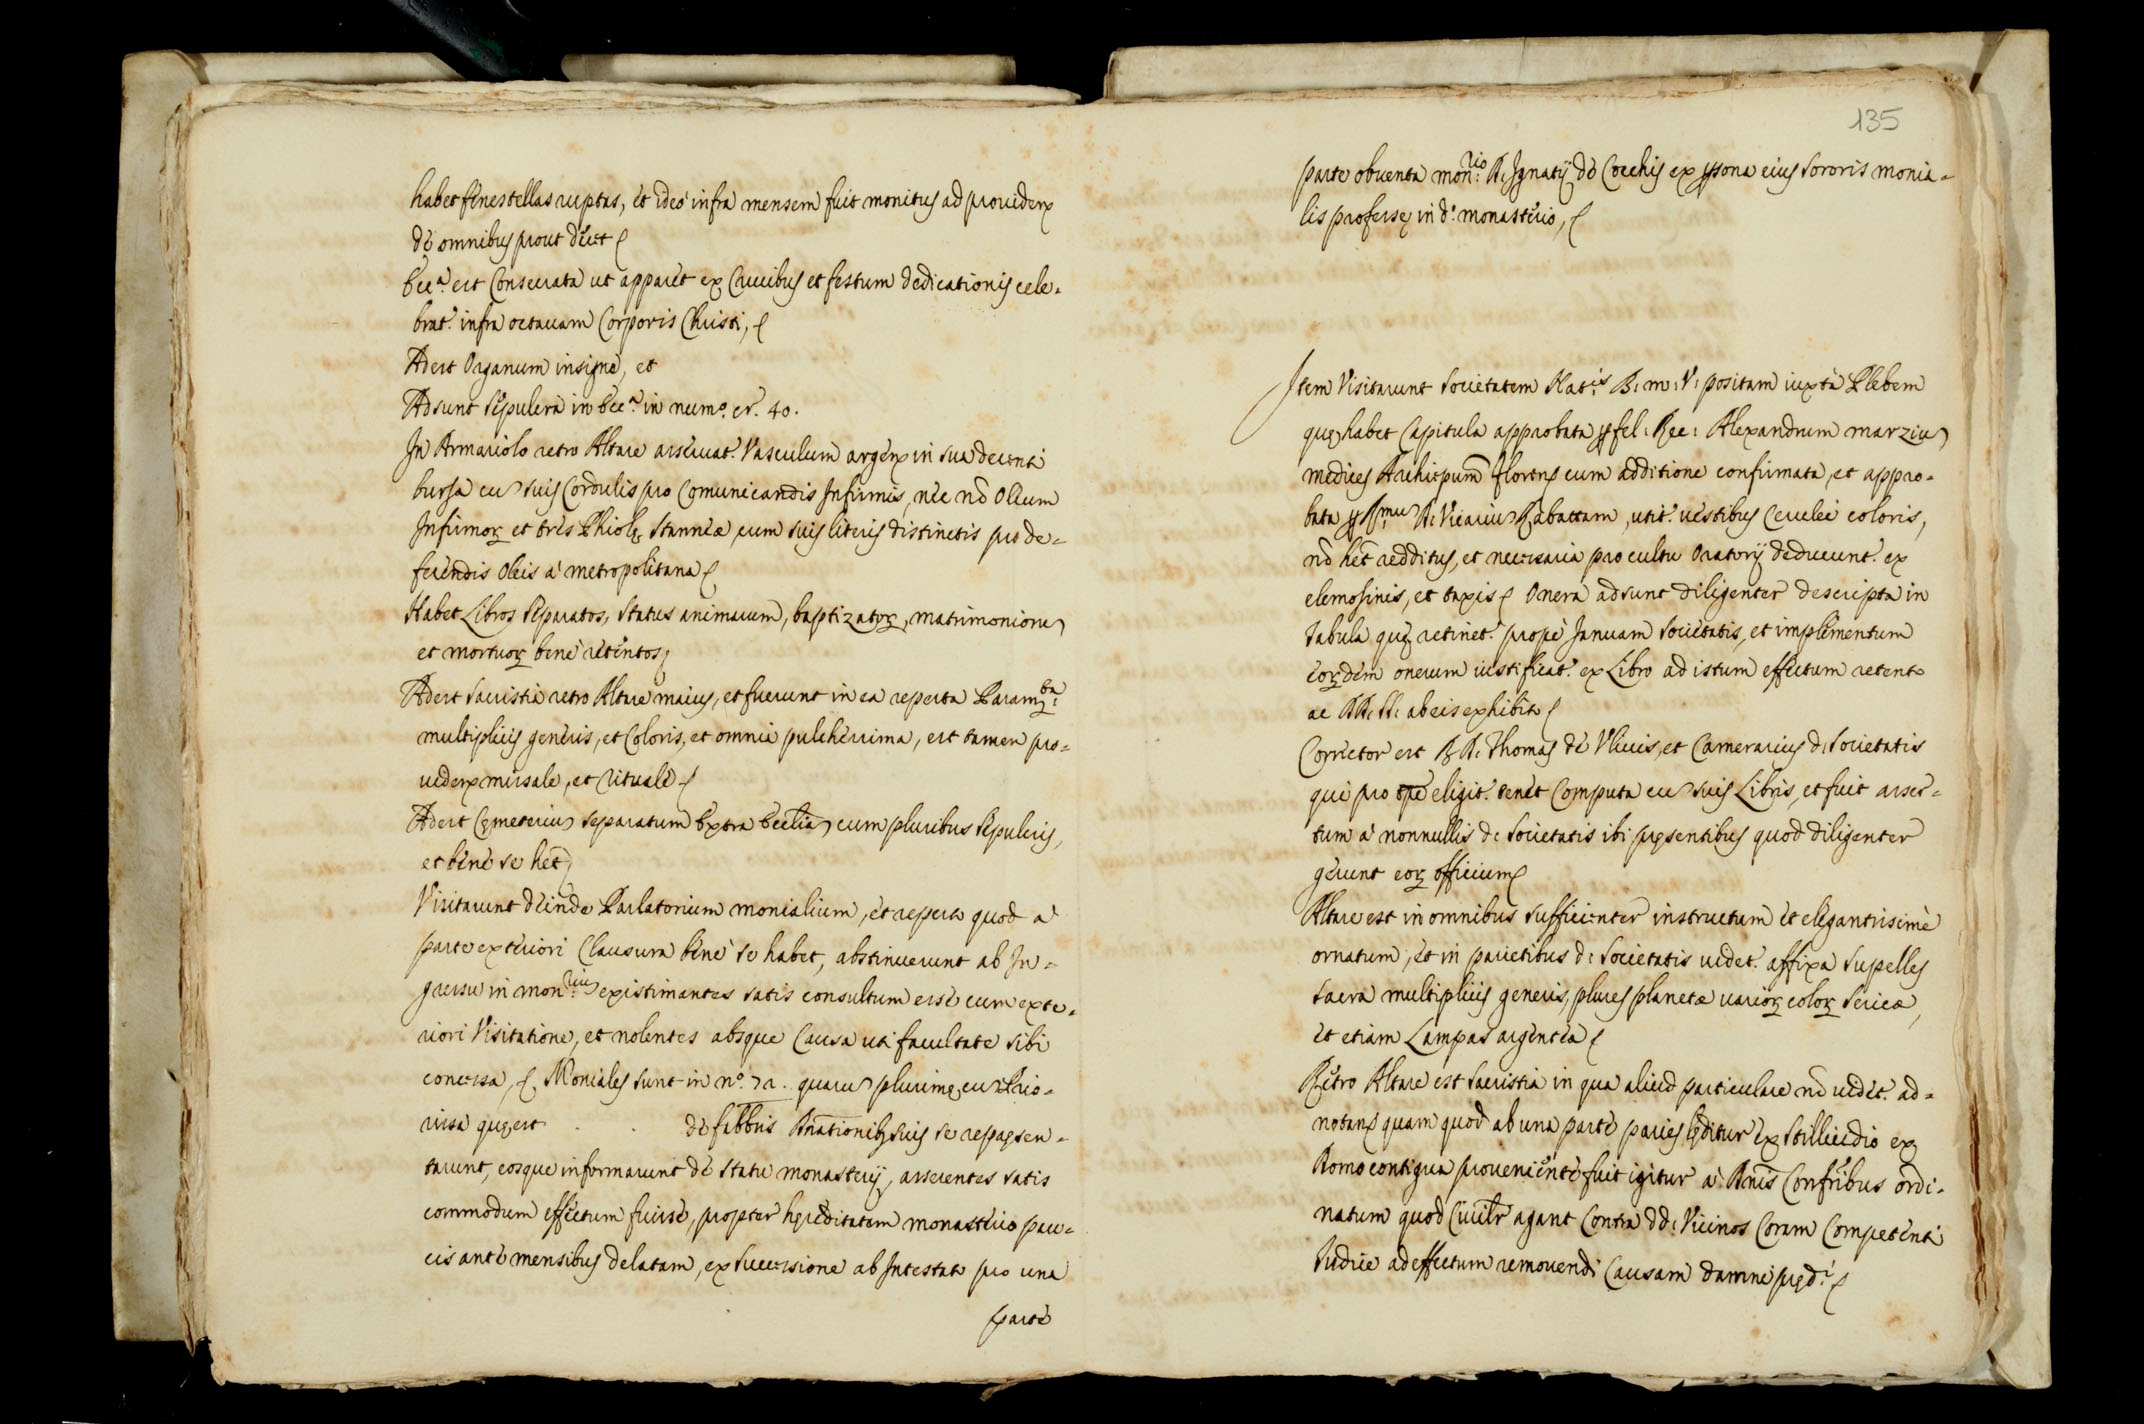 habet fenestellas ruptas, et ideò infra mensem fuit monitus ad prouidenx
dè omnibus prout decet
Ecc.ª est Consecrata ut apparèt ex Crucibus et festum dedicationis cele-
brat.r infra octauam Corporis Christi,
Adest Organum insigne, et
Adsunt sepulcra in Ecc.ª in num.º er. 40.
In Armariolo retro Altare asseruat.r Vasculum argènx in sua decenti
bursa cu suis Cordulis pro Comunicandis Infirmis, nèc nõ Oleum
Infirmoꝝ et très Phiolę stanneæ cum suis literis distinctis pro de-
ferèndis Oleis à metropolitana
Habet Libros separatos, status animarum, baptizatoꝝ, matrimonioru
et mortuoꝝ benè retèntos,
Adest sacristia retro Altare maius, et fuerunt in ea reperta Param.ta
multiplicis genèris, et Coloris, et omnia pulchèrrima, est tamen pro-
uidenx missale, et ritualè
Adest Cęmeteriu separatum Extra Eccliã cum pluribus sepulcris,
et bènè se hèt
Visitarunt dèinde Parlatorium monialium, èt reperto quod à
parte exteriori Clausura bènè se habet, abstinuerunt ab In-
gressu in mon.rium existimantes satis consultum essè cum exte-
riori Visitatione, et nolentes absque Causa uti facultate sibi
concessa, Moniàles sunt in n.º 72. quaru plurimę cu Prio-
rissa quę est . . dè fabbris Bnationibꝫ suis se repręsen-
tarunt, eosque informarunt dè statu monasterij, asserentes satis
commodum effectum fuissè, propter hęrèditatem monastèrio pau-
cis antè mensibus delatam, ex successione ab Intestato pro una
partè
135
parte obuenta mon.rio D. Ignatij dè Cocchis ex psona eius sororis monia-
lis professę in d.º monastèrio,
Item Visitarunt Societatem Nat.is B: m: V: positam iuxta Plebem
quę habet Capitula approbata p fel: Rec: Alexandrum marziu
medices Archiepum florenx cum additione confirmata, et appro-
bata p Rmu D. Vicariu Rabattam, utit.r uèstibus Cerulei coloris,
nõ hèt redditus, et necessaria pro cultu Oratorij deducunt.r ex
elemosinis, et taxis Onera adsunt diligenter descripta in
tabula quę retinet.r propè Januam Societatis, et implementum
eoꝝdèm onerum iustificat.r ex Libro ad istum effectum retento
ac DD: VV: ab eis exhibito
Corrector est R. D. Thomas dè Vliuis, et Camerarius d: Societatis
qui pro tpè eligit.r tenèt Computa cu suis Libris, et fuit asser-
tum à nonnullis d: Societatis ibi pręsentibus quod diligenter
gèrunt eoꝝ officium
Altare est in omnibus sufficienter instructum et elegantissimè
ornatum, èt in parietibus d: Societatis uidet.r affixa supellex
sacra multiplicis generis, plures planetæ uarioꝝ coloꝝ sericæ,
èt etiam Lampas argèntèa
Rètro Altare est sacristia in qua aliud particulare nõ uidèt.r ad-
notanx quam quod ab una partè paries lęditur ex stillicidio ex
Domo contigua prouenièntè fuit igitur à Dnis Confribus ordi-
natum quod Ciuilr agant Contra dd: Vicinos Coram Competènti
Iudice ad effectum remouendi Causam damni pręd.i